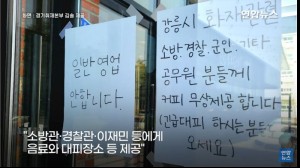 화면 : 경기취재본부 김솔 제공
연합뉴스
일반 영업
안합니다.
강릉시 화재관련
소방.경찰.군인.기타
공무원 분들께
커피 무상제공 합니다
(긴급대피 하시는 분들도
오세요!)
"소방관·경찰관·이재민 등에게
음료와 대피장소 등 제공"